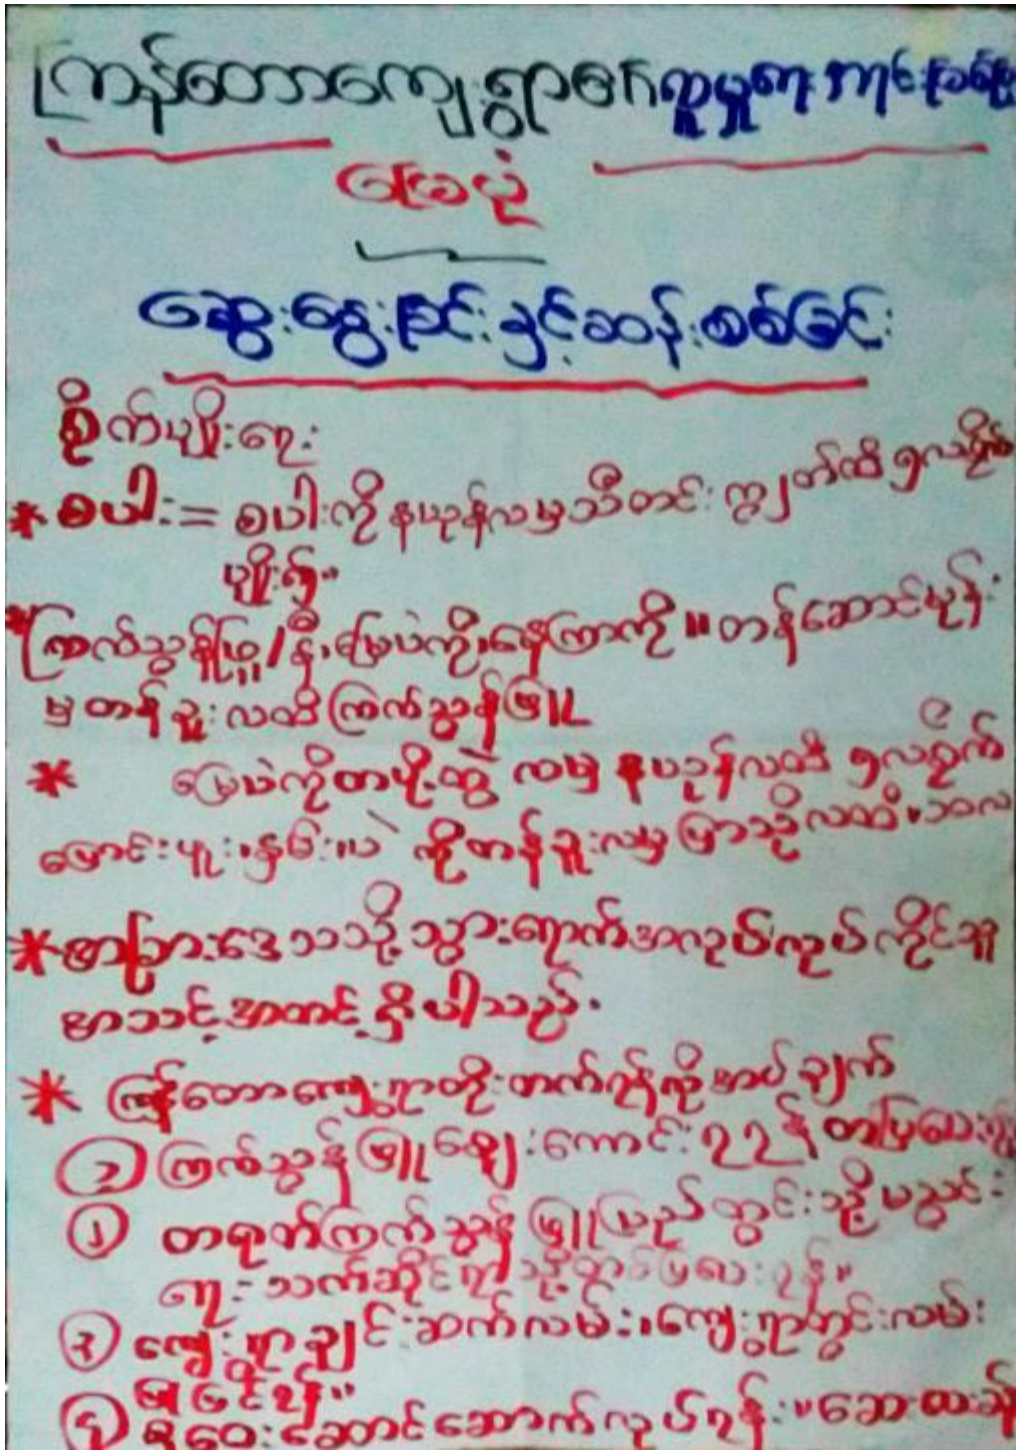 ကြန်တောကျေးရွာ၏လူမှုရေး
မြေပုံ
ဆွေးနွေးခြင်းနှင့်ဆန်းစစ်ခြင်း
စိုက်ပျိုးရေး
* စပါး = စပါးကို နယုန်လမှသီတင်းကျွတ်ထိ ၅လစိုက်
ပျိုး၏။
* ကြက်သွန်ဖြူ/နီ၊ မြေပဲကို၊ နေကြာကို ။ တန်ဆောင်မုန်း
မှ တန်ခူးလထိ ကြက်သွန်ဖြူ
* မြေပဲကိုတပို့တွဲ လမှ နယုန်လထိ ၅လစိုက်
ပြောင်းဖူး၊ နှမ်း၊ ပဲ ကိုတန်ခူးလမှ ပြာသိုလထိ၊
* အခြားဒေသသို့ သွားရောက်အလုပ်လုပ်ကိုင်သူ
အသင့်အတင့်ရှိပါသည်။
* ကြန်တောကျေးရွာတိုးတက်ရန်လိုအပ်ချက်
၁ ကြက်သွန်ဖြူဈေးကောင်းရရန်
၂ တရုတ်ကြက်သွန်ဖြူပြည်တွင်းသို့မသွင်း
ရေး သက်ဆိုင်ရာသို့တင်ပြပေးရန်။
၃ ကျေးရွာချင်းဆက်လမ်း၊ ကျေးရွာတွင်းလမ်း
ပြုပြင်ရန်။
၄ စုဝေးဆောင်ဆောက်လုပ်ရန်။ ဆေးပေးခန်း